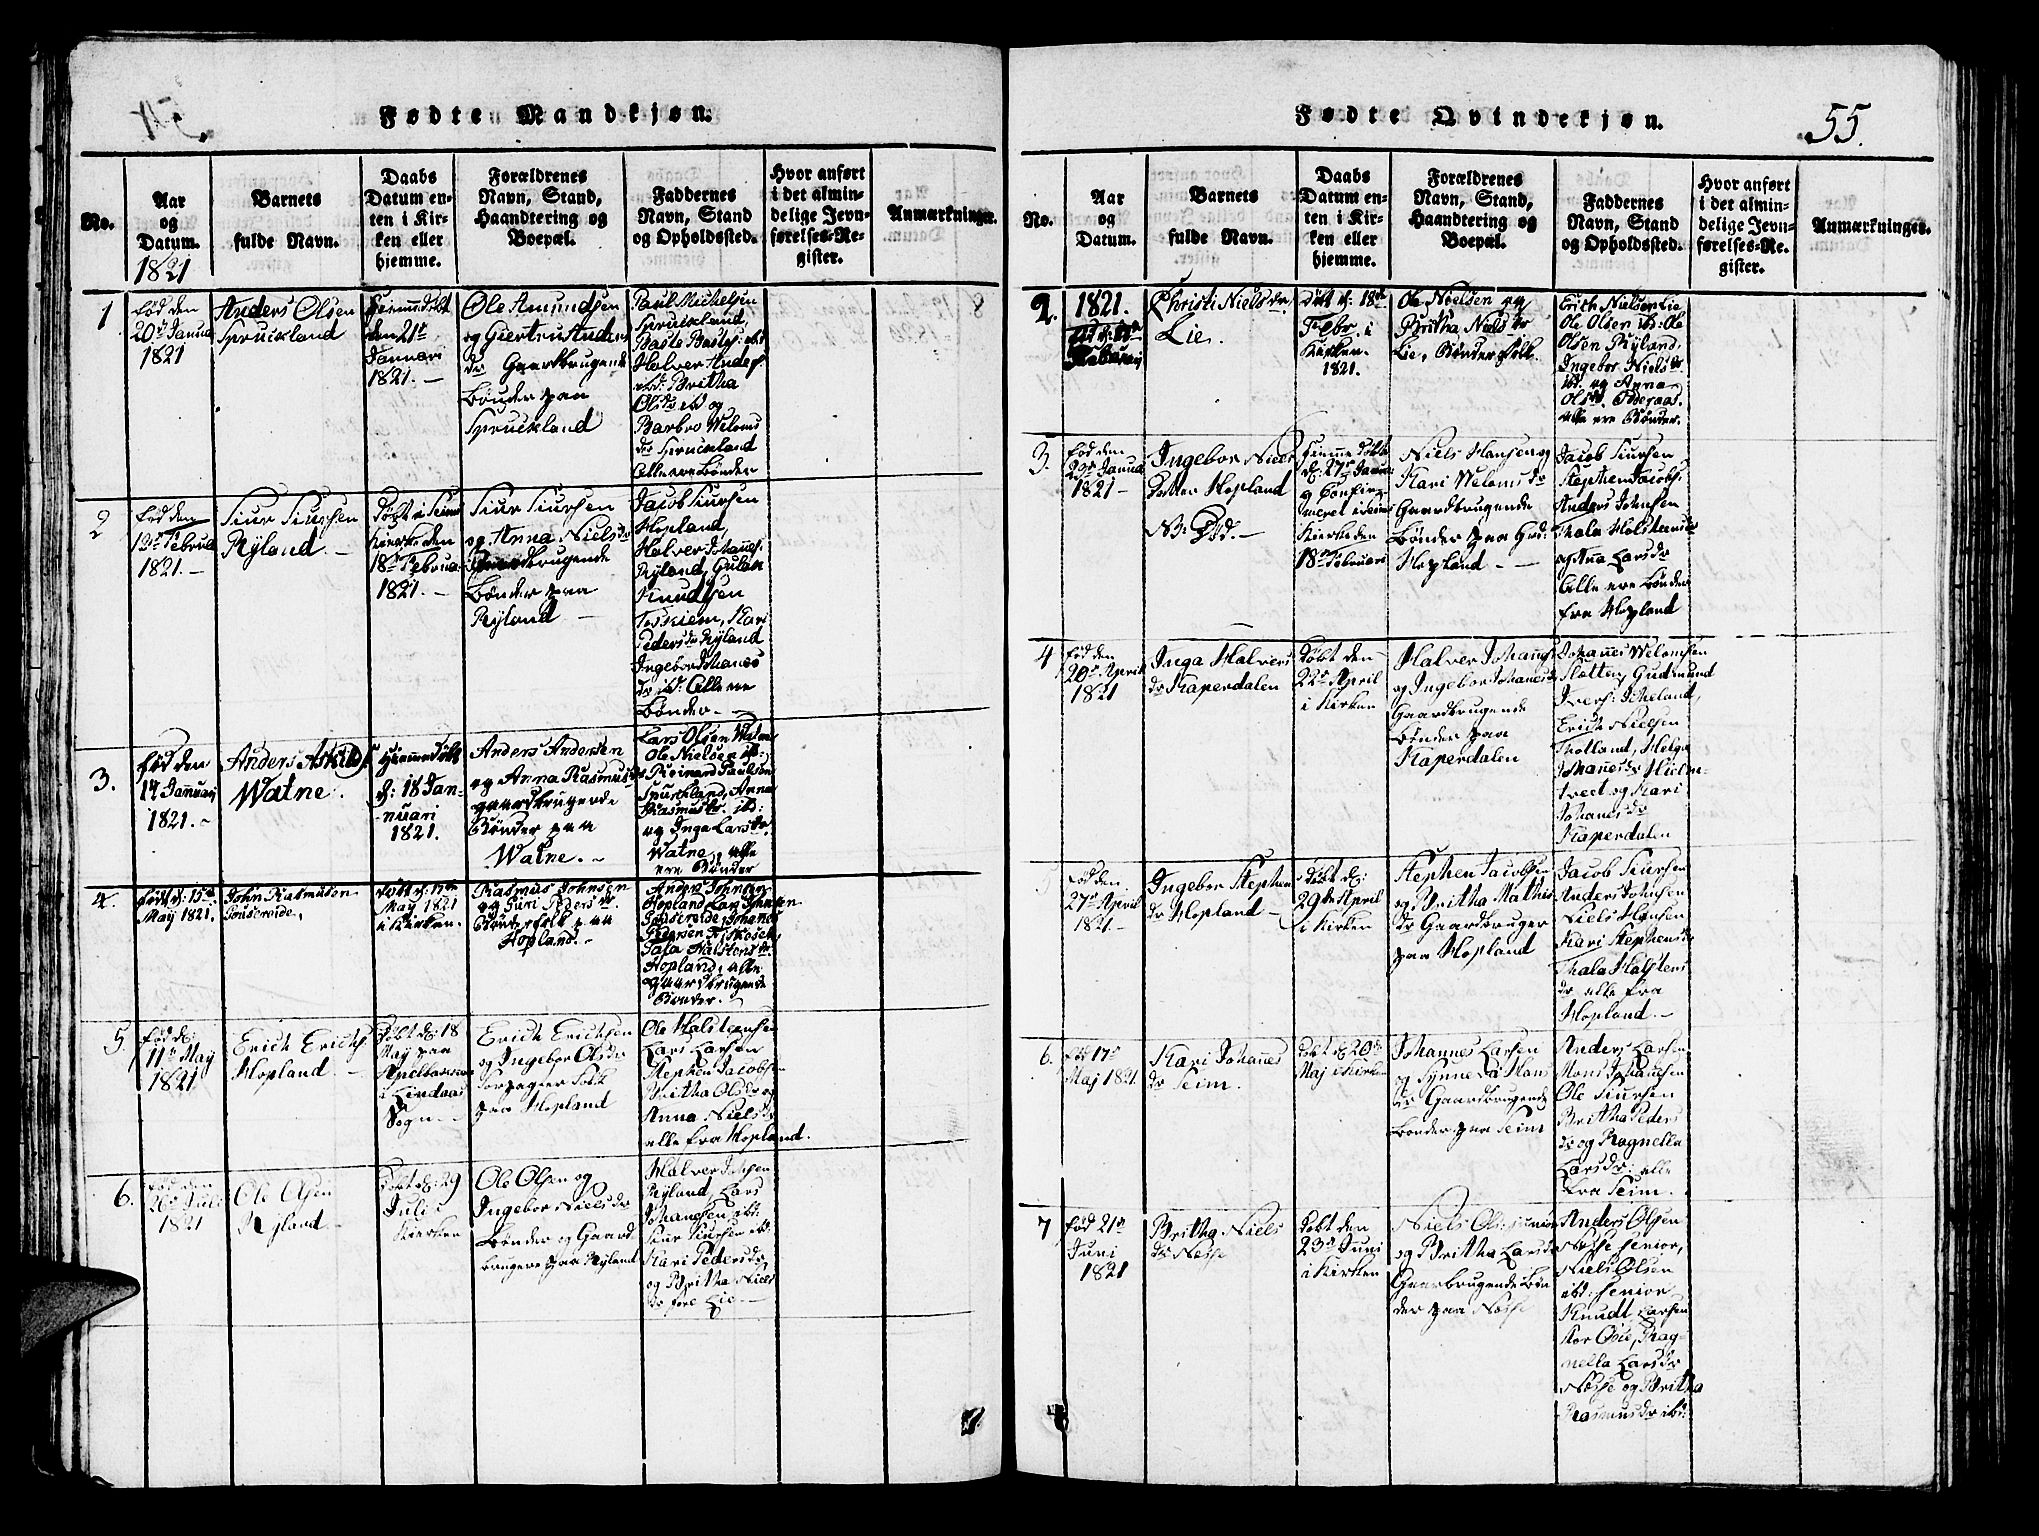 Fødte Mandkjøn.
No.
Aar
og
Datum.
1821
Barnets
fulde Navn.
Daabs
Datum en-
ten i Kir-
ken eller
hjemme.
Forældrenes
Navn, Stand,
Haandtering og
Boepæl.
Faddernes
Navn, Stand
og Opholdssted.
Hvor anført
i det almin-
delige Jevn-
førelses-Re-
gister.
Anmærkninger.
1
fød den
20de Janua
1821
Anders Olsen
Spruckland
hiemmedøbt
den 21de
Januari
1821. —
Ole Amundsen
og Giertru Anders
dr Gaardbrugende
bønder paa
Spruckland
Paul Michelsen
Spruckland,
Baste Bastes: ibd
Halver Anders:
ibd: Britha
Olsdr ibd og
Barbro Weloms
dr Spruckland
Alle ere bønder
2
fød den
12te Februa
1821. —
Siur Siursen
Ryland. —
døbt i Seims
Kierke den
18de Februa:
1821. —
Siur Siursen
og Anna Nielsdr
Gaardbrugende
bønder paa
Ryland —
Jacob Siursen
Hopland,
Halver Johannes:
Ryland, Gulak
Knudsen
Teskiem, Kari
Pedersdr Ryland
Ingebor Johannes
dr ibd: Alle ere
bønder. —
3.
fød den
14 Januari
1821. -
Anders Askilds:
Watne.
Hiemmedøbt
d: 18 Jan-
nuari
1821.
Anders Andersen
og Anna Rasmusdr
gaardbrugende
Bønder paa
Watne. -
Lars Olsen Watne
Ole Nielsen ib:
Reinard Paulsen
Spurkland, Anna
Rasmusdr. ib:
og Inga Larsdr
Watne, alle
ere Bønder
4.
født d: 15de
May 1821.
John Rasmusen
døbt d: 17de
May 1821
i Kirken.
Rasmus Johnsen
og Guri Pedersdr.
Bønderfolk paa
Hopland. -
Anders Johnsen
Hopland, Lars Johnsen
Tala Halstensdr.
Hopland, alle
gaardbrugende
Bønder. -
5.
fød d:
11te May
1821
Erich Erichs:
Hopland —
døbt d: 18
May paa
i Lindaas
Sogn. —
Erich Erichsen
og Ingebor Olsdr
paa Hopland
Ole Halsteensen
Lars Larsen
Stephen Jacobsen
Britha Olsdr og
Anna Nielsdr
alle fra Hopland.
6.
fød den
26de Juli
1821
Ole Olsen
Ryland —
døbt d: 29
Juli i
Kierken
Ole Olsen og
Ingebor Nielsdr
Bønder og Gaard
brugere paa Ryland
Halver Johsen
Ryland, Lars
Johannesen ibd:
Siur Siursen ibd
Kari Pedersdr
og Britha Niels
dr fore Lie —
Fødte Qvindekjøn.
55.
No.
Aar
og
Datum.
Barnets
fulde Navn.
Daabs
Datum en-
ten i Kir-
ken eller
hjemme.
Forældrenes
Navn, Stand,
Haandtering og
Boepæl.
Faddernes
Navn, Stand
og Opholdssted.
Hvor anført
i det almin-
delige Jevn-
førelses-Re-
gister.
Anmærkninger.
2.
1821.
Christi Nielsdr
Lie.
døbt d: 18de
Febr. i
Kirken.
1821.
Ole Nielsen og
Britha Nielsdr
Lie, Bønderfolk.
Erich Nielsen Lie
Ole Olsen ib: Ole
Olsen Ryland,
Ingebor Nielsdr.
ib. og Anna
Olsdr. Fideraas.
alle ere Bønder.
3.
fød den
22de Janua
1821 —
Ingebor Niels
datter Hopland
NB: Død. —
hiemmedøbt
d: 27de Janua
og Confir
meret i Seims
Kierke den
18de Februari
Niels Hansen og
Kari Welomsdr
Gaardbrugende
bønder paa Grd:
Hopland — —
Jacob Siursen
Stephen Jacobs:
Anders Johnsen
Thala Halsteensdr
og Anna Larsdr
Alle ere bønder
fra Hopland
4
fød den
20de April
1821
Inga Halvers
dr Kaperdalen
døbt den
22de April
i Kirken
Halver Johannes:
og Ingebor Johannesdr
Gaardbrugende
bønder paa
Kaperdalen
Johannes Welomsen
Sletten, Gudmund
Ivers: Icheland,
Erich Nielsen
Trolland, Helga
Johannesdr Hielm-
tveet og Kari
Johannesdr
Kaperdalen
5
fød den
27de April
1821. —
Ingebor Stephens
dr Hopland —
døbt d:
29de April
i Kirken
Stephen Jacobsen
og Britha Mathis
dr Gaardbruger
paa Hopland
Jacob Siursen
Anders Johnsen
Niels Hansen
Kari Stephensdr
Thala Halstens
dr alle fra
Hopland. —
6.
fød 17de
Maj 1821.
Kari Johannes
dr Seim.
døbt d: 20de
Maj i Kirken
Johannes Larsen
og Synneva Hans
dr Gaardbrugende
bønder paa Seim
Anders Larsen
Mons Johannesen
Ole Siursen
Britha Peders
dr og Ragnella
Larsdr: alle
fra Seim.
7
fød 21de
Juni
1821
Britha Niels
dr Nesse
døbt den
23de Juni
i Kirken
Niels Ols: junior
og Britha Larsdr
Gaarbrugende bøn
der paa Nesse
Anders Olsen
Nesse senior,
Niels Olsen
ibd: senior
Knudt Larsen
Kor Øie, Rag-
nella Larsdr
Nesse og Britha
Rasmusdr ibd: